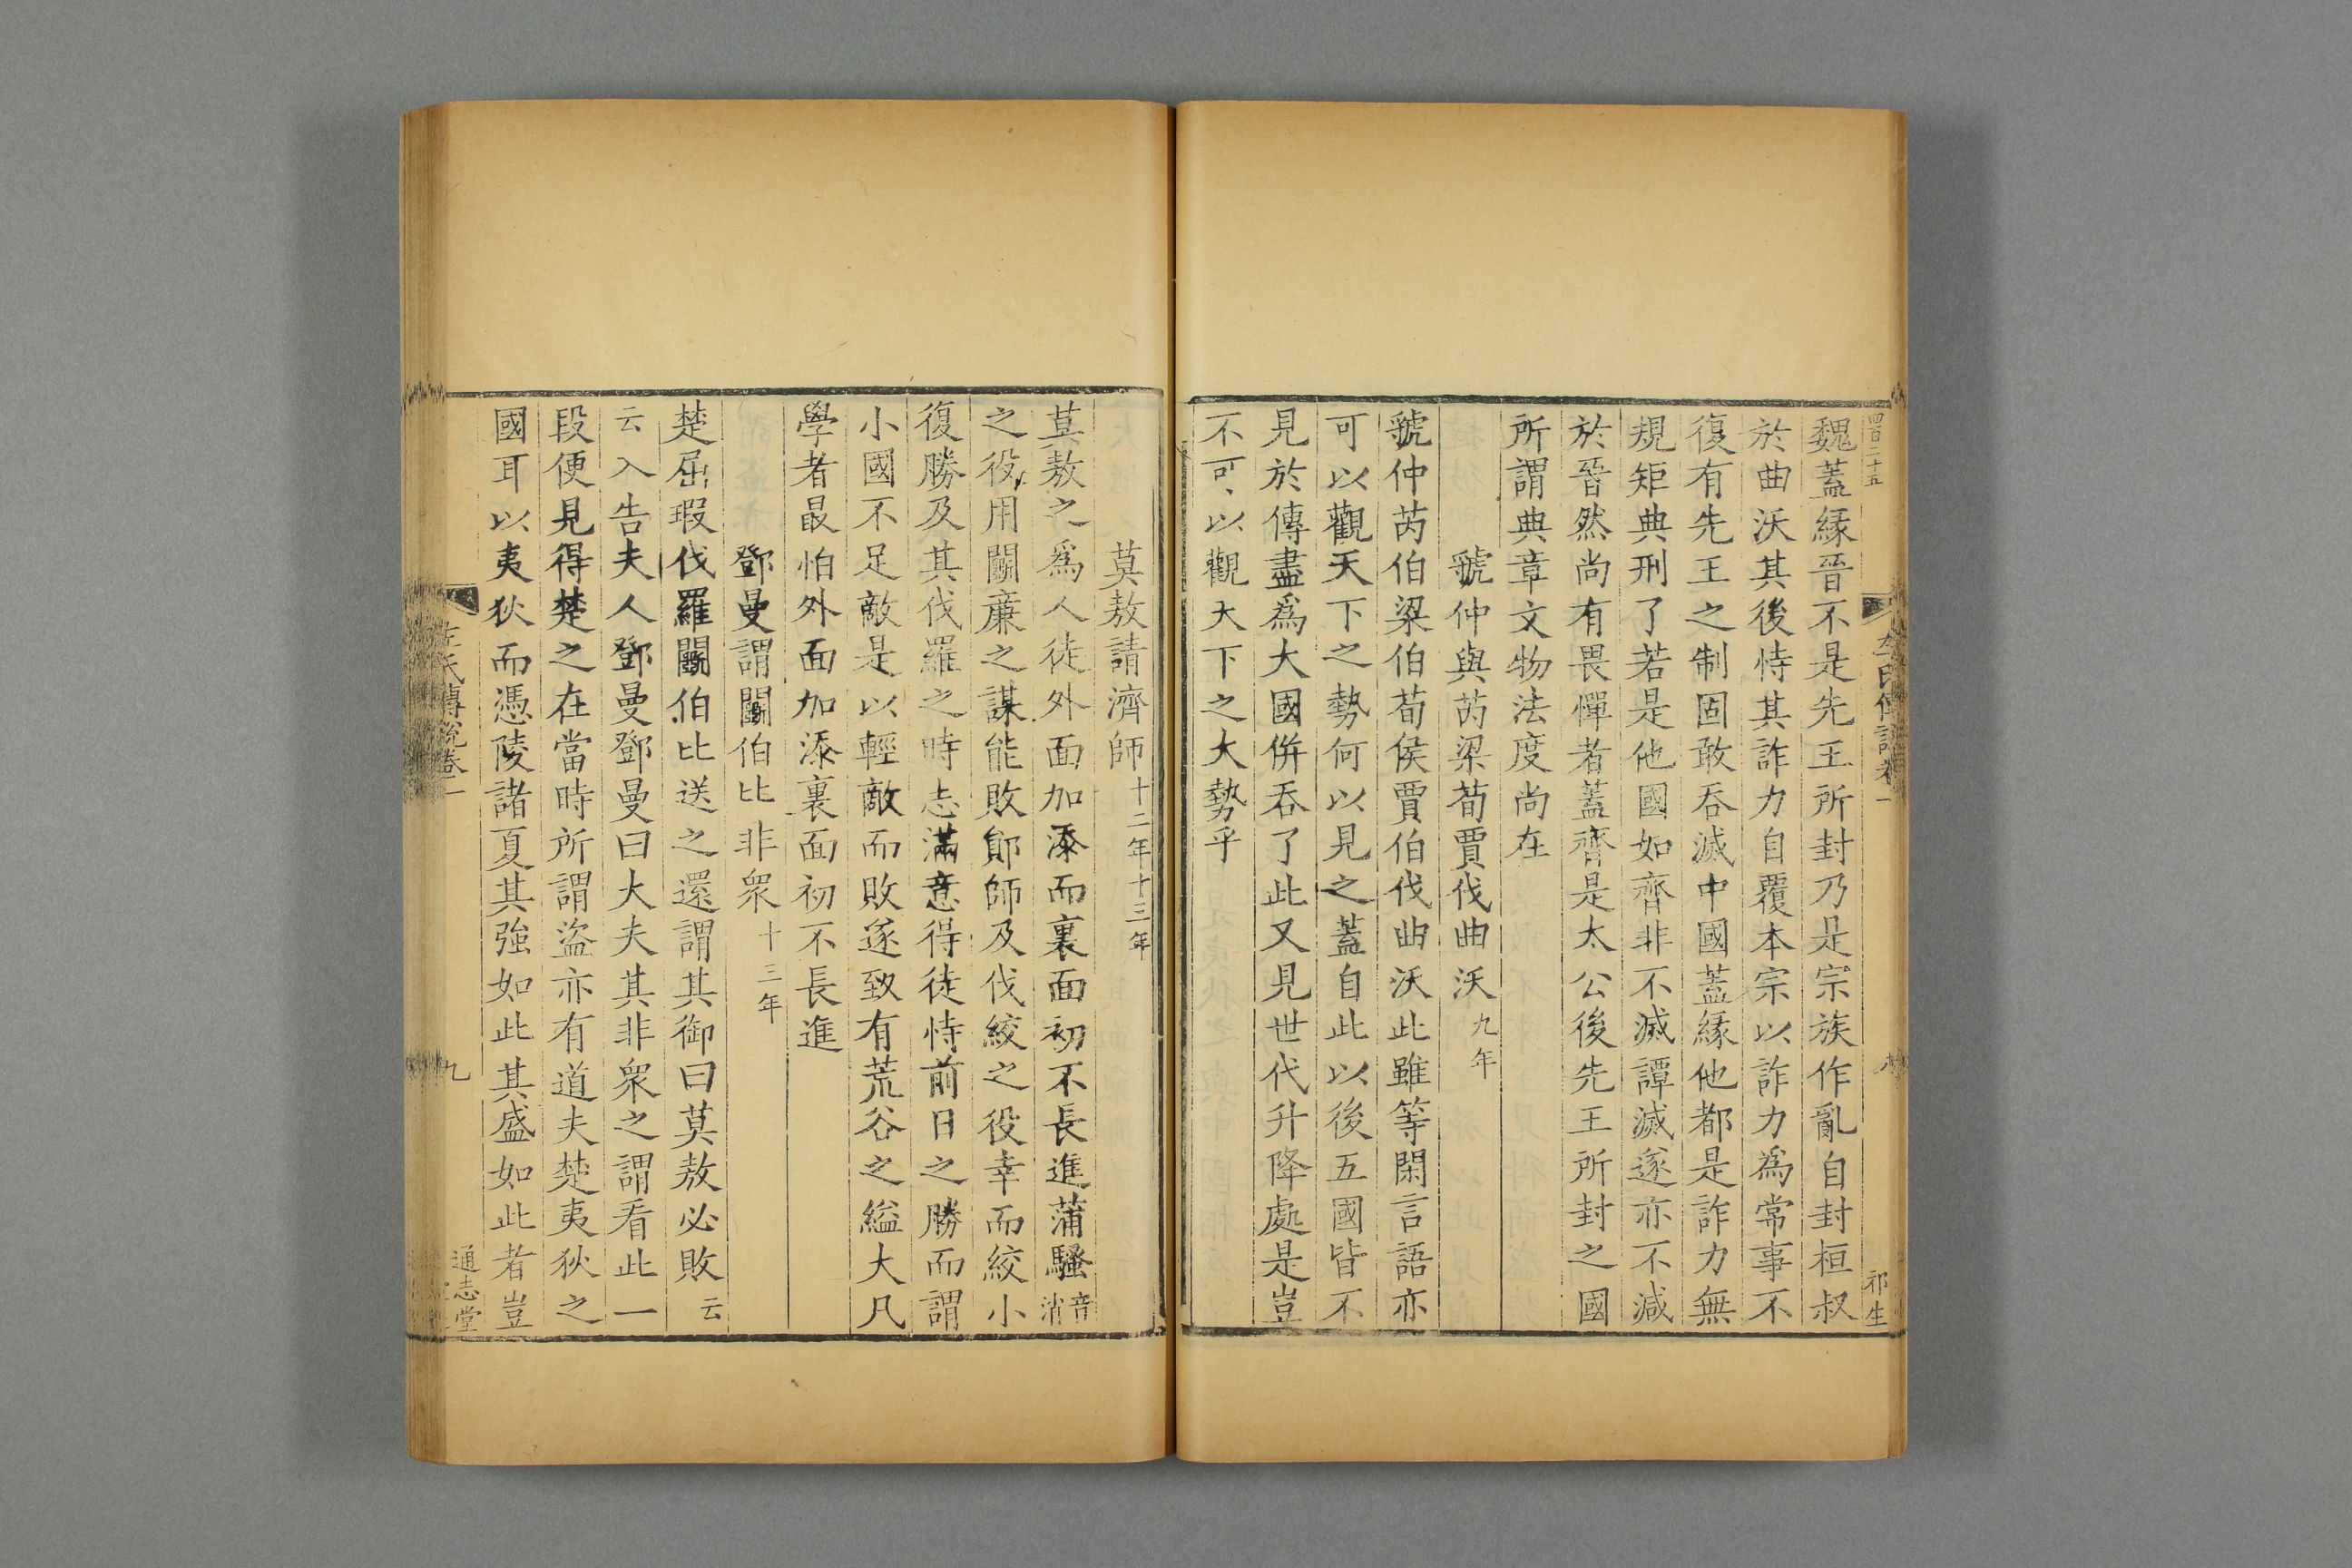 四百二十五
左氏傳說卷一
八
祁生
魏蓋緣晉不是先王所封乃是宗族作亂自封桓叔
於曲沃其後恃其詐力自覆本宗以詐力為常事不
復有先王之制固敢吞滅中國蓋緣他都是詐力無
規矩典刑了若是他國如齊非不滅譚滅遂亦不減
於晉然尚有畏憚者蓋齊是太公後先王所封之國
所謂典章文物法度尚在
虢仲與芮梁荀賈伐曲沃九年
虢仲芮伯梁伯荀侯賈伯伐曲沃此雖等閑言語亦
可以觀天下之勢何以見之蓋自此以後五國皆不
見於傳盡爲大國併吞了此又見世代升降處是豈
不可以觀大下之大勢乎
莫敖請濟師十二年十三年
莫敖之爲人徒外面加添而裏面初不長進蒲騷音消
之役用鬭廉之謀能敗鄖師及伐絞之役幸而絞小
復勝及其伐羅之時志滿意得徒恃前日之勝而謂
小國不足敵是以輕敵而敗遂致有荒谷之縊大凡
學者最怕外面加添裏面初不長進
鄧曼謂鬭伯比非衆十三年
楚屈瑕伐羅鬭伯比送之還謂其御曰莫敖必敗云
云入告夫人鄧曼鄧曼曰大夫其非衆之謂看此一
段便見得楚之在當時所謂盜亦有道夫楚夷狄之
國耳以夷狄而憑陵諸夏其強如此其盛如此者豈
左氏傳說卷一
九
通志堂